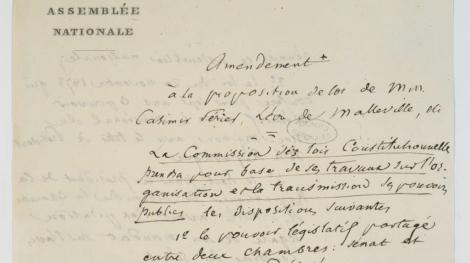 ASSEMBLÉE
NATIONALE
Amendement +
à la proposition de loi de M.M.
Casimir Périer, Léon de Malleville, &
La Commission des lois Constitutionnelles
prendra pour base de ses travaux sur l'or-
ganisation et la transmission des pouvoirs
publics les dispositions suivantes
1º le pouvoir législatif partagé
entre deux chambres: sénat et